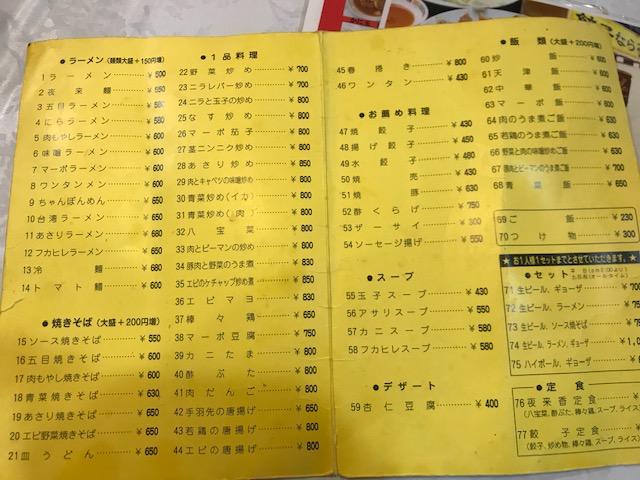 ● ラーメン (麺類大盛+150円増)
1 ラーメン ¥500
2 夜来麺 ¥550
3 五目ラーメン ¥580
4 にらラーメン ¥580
5 肉もやしラーメン ¥600
6 味噌ラーメン ¥600
7 マーボラーメン ¥600
8 ワンタンメン ¥600
9 ちゃんぽんめん ¥650
10 台湾ラーメン ¥650
11 あさりラーメン ¥680
12 フカヒレラーメン ¥680
13 冷麺 ¥680
14 トマト麺 ¥680
● 焼きそば (大盛+200円増)
15 ソース焼きそば ¥550
16 五目焼きそば ¥600
17 肉もやし焼きそば ¥600
18 青菜焼きそば ¥630
19 あさり焼きそば ¥650
20 エビ野菜焼きそば ¥650
21 皿うどん ¥650
● 1品料理
22 野菜炒め ¥700
23 ニラレバー炒め ¥700
24 ニラと玉子の炒め ¥800
25 なす炒め ¥800
26 マーボ茄子 ¥800
27 茎ニンニク炒め ¥800
28 あさり炒め ¥850
29 肉とキャベツの味噌炒め ¥800
30 青菜炒め(イカ) ¥800
31 青菜炒め(肉) ¥800
32 八宝菜 ¥800
33 肉とピーマンの炒め ¥800
34 豚肉と野菜のうま煮 ¥830
35 エビのケチャップ炒め煮 ¥850
36 エビマヨ ¥830
37 棒々鶏 ¥650
38 マーボ豆腐 ¥750
39 カニたま ¥800
40 酢ぶた ¥800
41 肉だんご ¥800
42 手羽先の唐揚げ ¥650
43 若鶏の唐揚げ ¥800
44 エビの唐揚げ ¥800
45 春捲き ¥800
46 ワンタン ¥430
● お薦め料理
47 焼餃子 ¥430
48 揚げ餃子 ¥450
49 水餃子 ¥480
50 焼売 ¥450
51 焼豚 ¥630
52 酢くらげ ¥750
53 ザーサイ ¥300
54 ソーセージ揚げ ¥550
● スープ
55 玉子スープ ¥430
56 アサリスープ ¥550
57 カニスープ ¥580
58 フカヒレスープ ¥580
● デザート
59 杏仁豆腐 ¥400
● 飯類 (大盛+200円増)
60 炒飯
61 天津飯
62 中華飯
63 マーボ飯
64 肉のうま煮ご飯
65 若鶏のうま煮ご飯
66 野菜と肉の味噌炒めご飯
67 豚肉とピーマンのうま煮ご飯
68 青菜飯
69 ご飯 ¥230
70 つけ物 ¥300
★ お1人様1セットまでとさせていただきます。★
● セット
71 生ビール、ギョーザ ¥700
72 生ビール、ラーメン ¥750
73 生ビール、ソース焼そば
74 生ビール、ラーメン、ギョーザ
75 ハイボール、ギョーザ
● 定食
76 夜来香定食
(八宝菜、酢ぶた、棒々鶏、スープ、ライス)
77 餃子定食
(餃子、炒め物、棒々鶏、スープ、ライス)